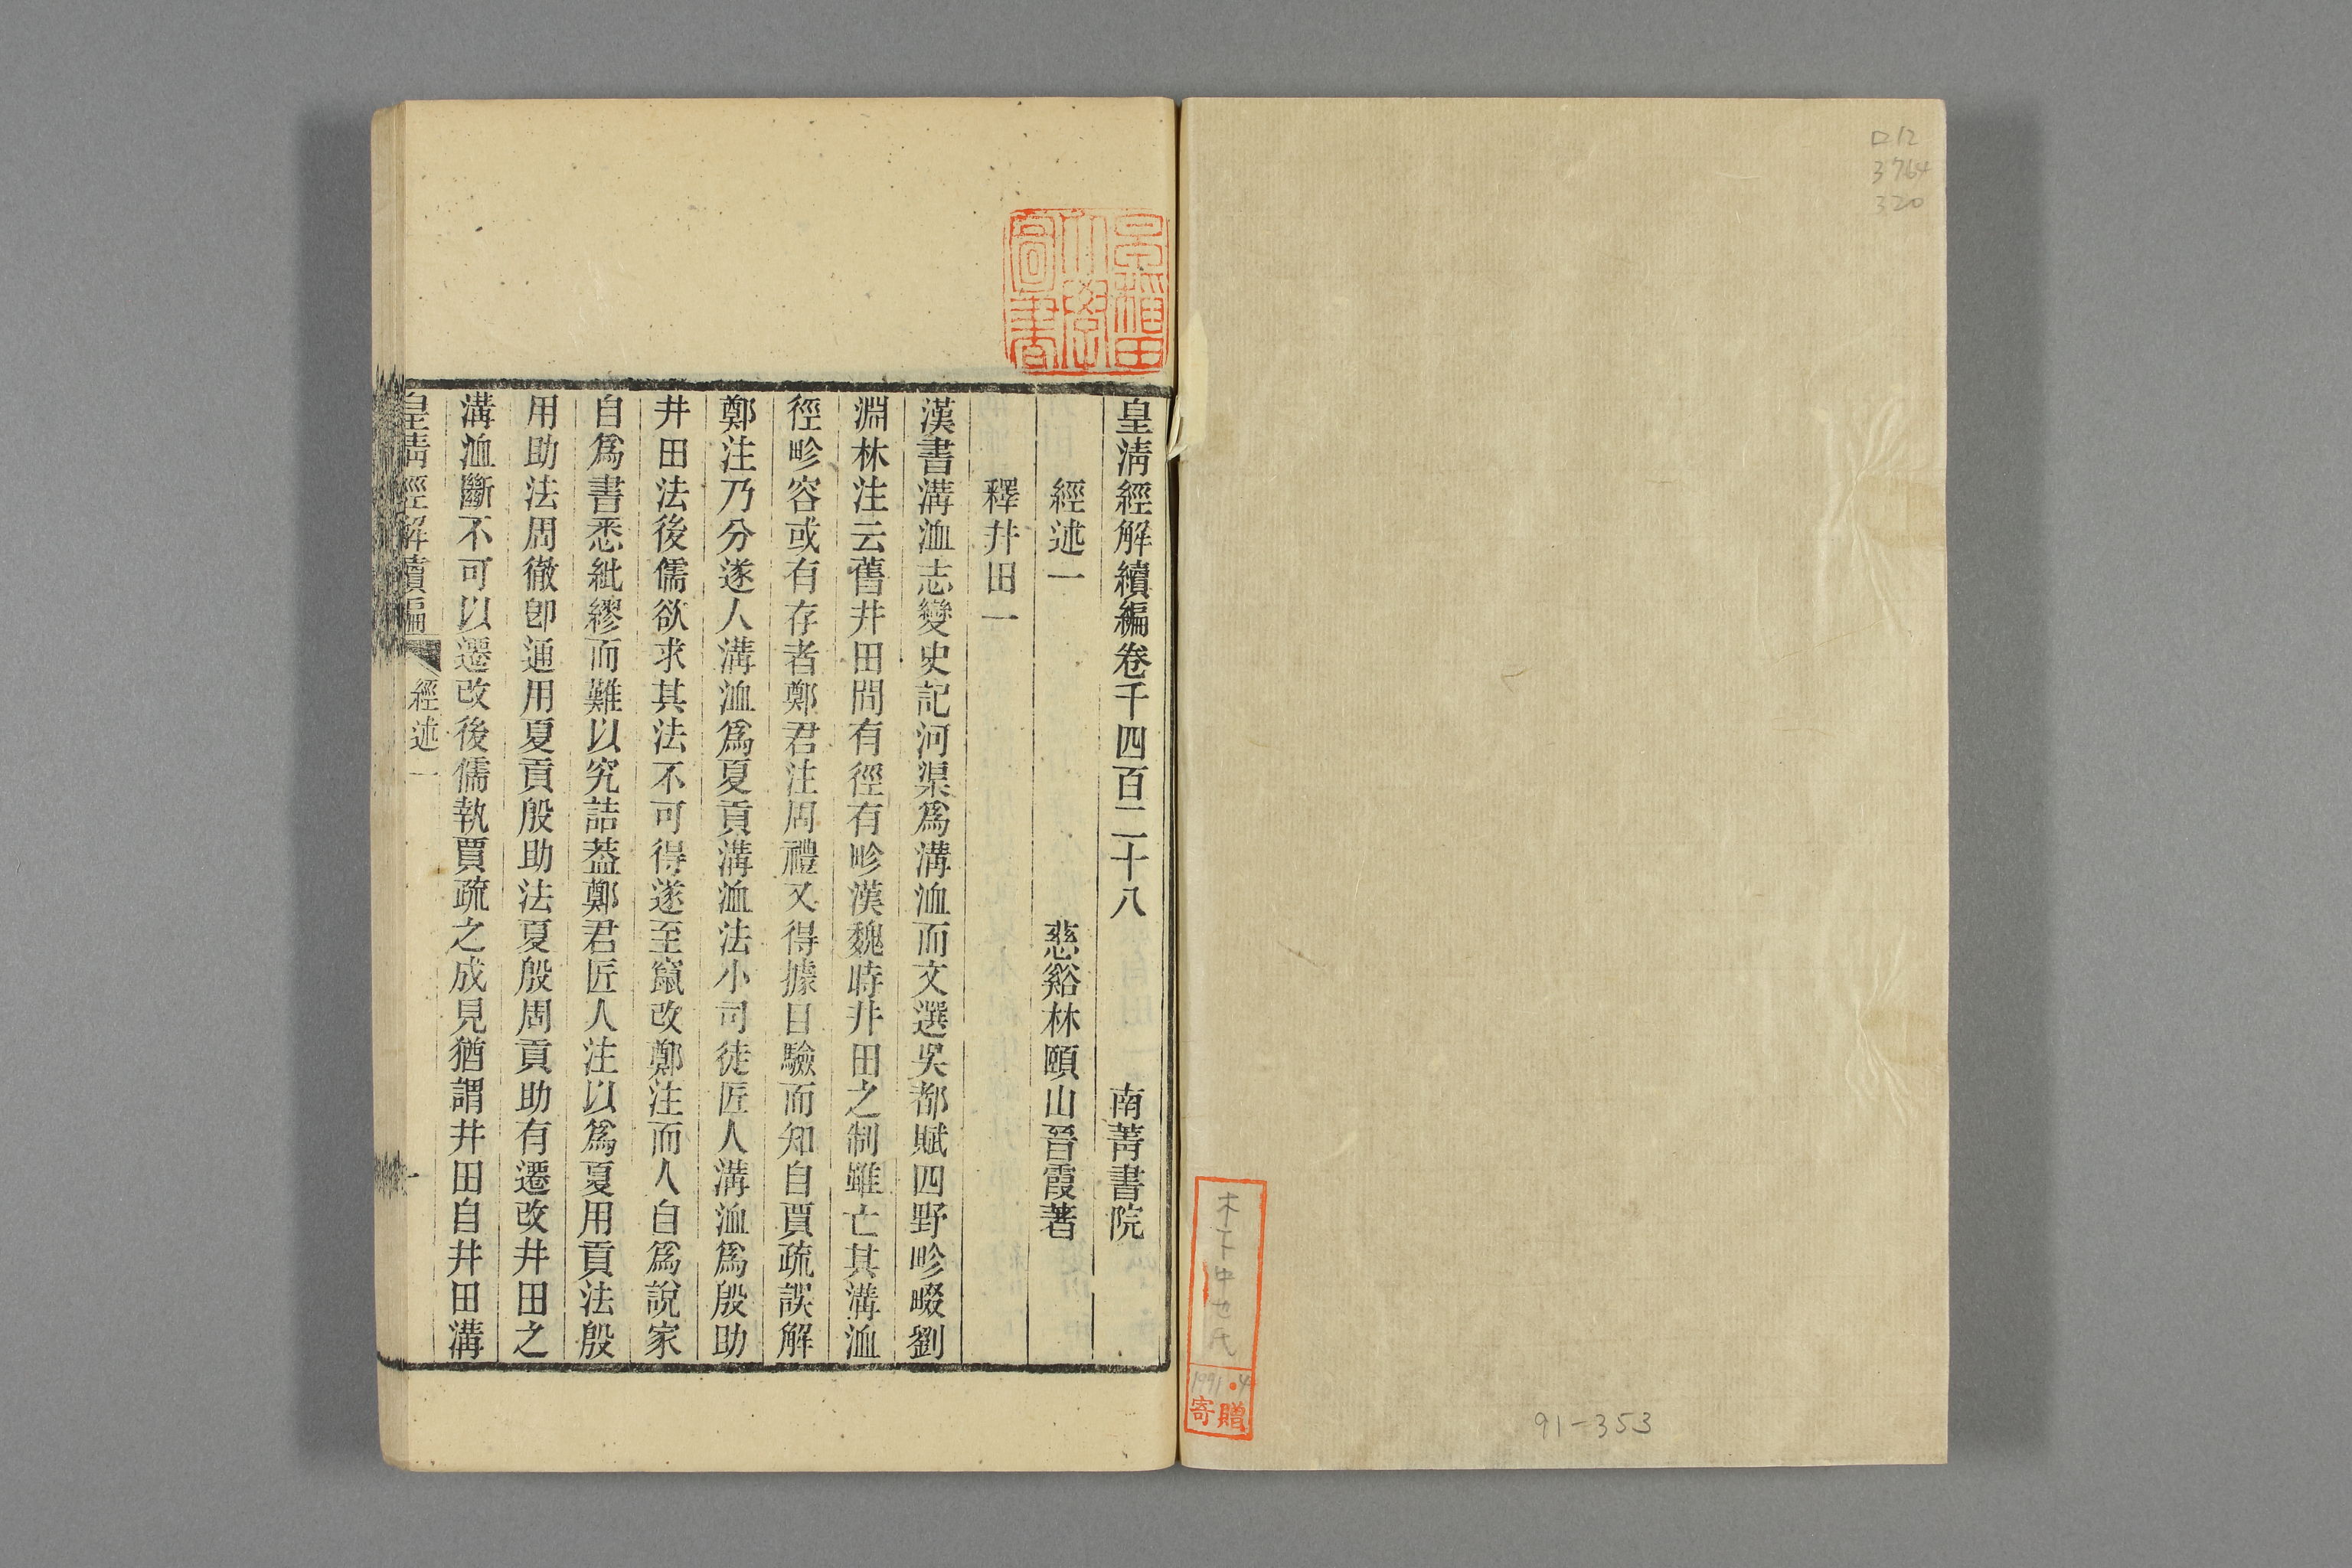 口12
3764
320
木下中也氏
1991.4
寄贈
91-353
早稲田
大學
圖書
皇淸經解續編卷千四百二十八 南菁書院
經述一 慈谿林頤山晉霞著
釋井田一
漢書溝洫志變史記河渠爲溝洫而文選吳都賦四野畛畷劉
淵林注云舊井田間有徑有畛漢魏時井田之制雖亡其溝洫
徑畛容或有存者鄭君注周禮又得據目驗而知自賈疏誤解
鄭注乃分遂人溝洫爲夏貢溝洫法小司徒匠人溝洫爲殷助
井田法後儒欲求其法不可得遂至竄改鄭注而人自爲說家
自爲書悉紕繆而難以究詰葢鄭君匠人注以爲夏用貢法殷
用助法周徹卽通用夏貢殷助法夏殷周貢助有遷改井田之
溝洫斷不可以遷改後儒執賈疏之成見猶謂井田自井田溝
皇淸經解續編 經述一 一